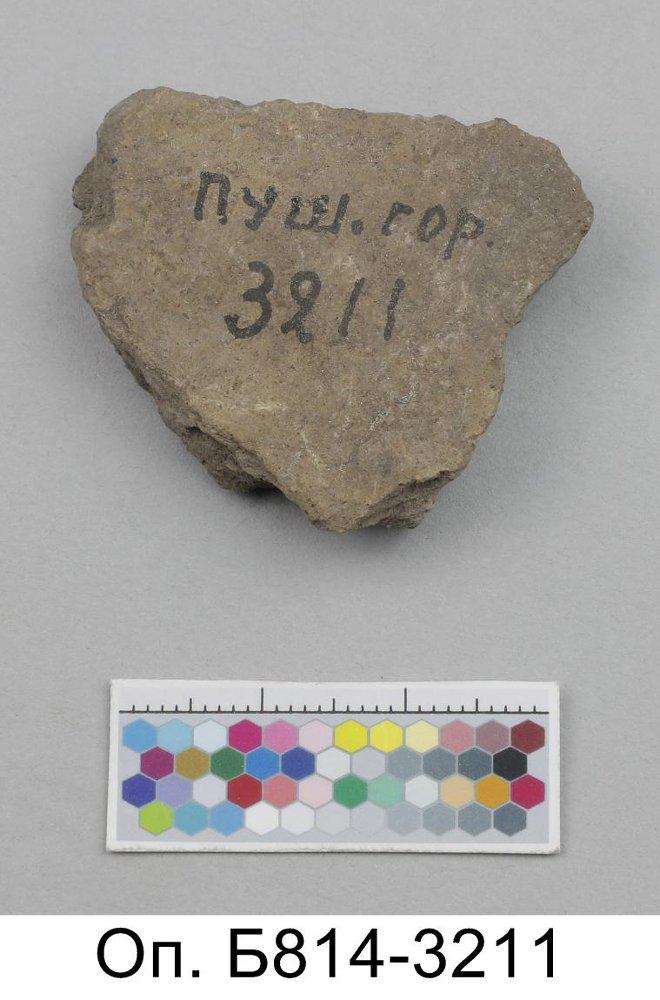 пуш. гор.
3211
Оп. Б814-3211